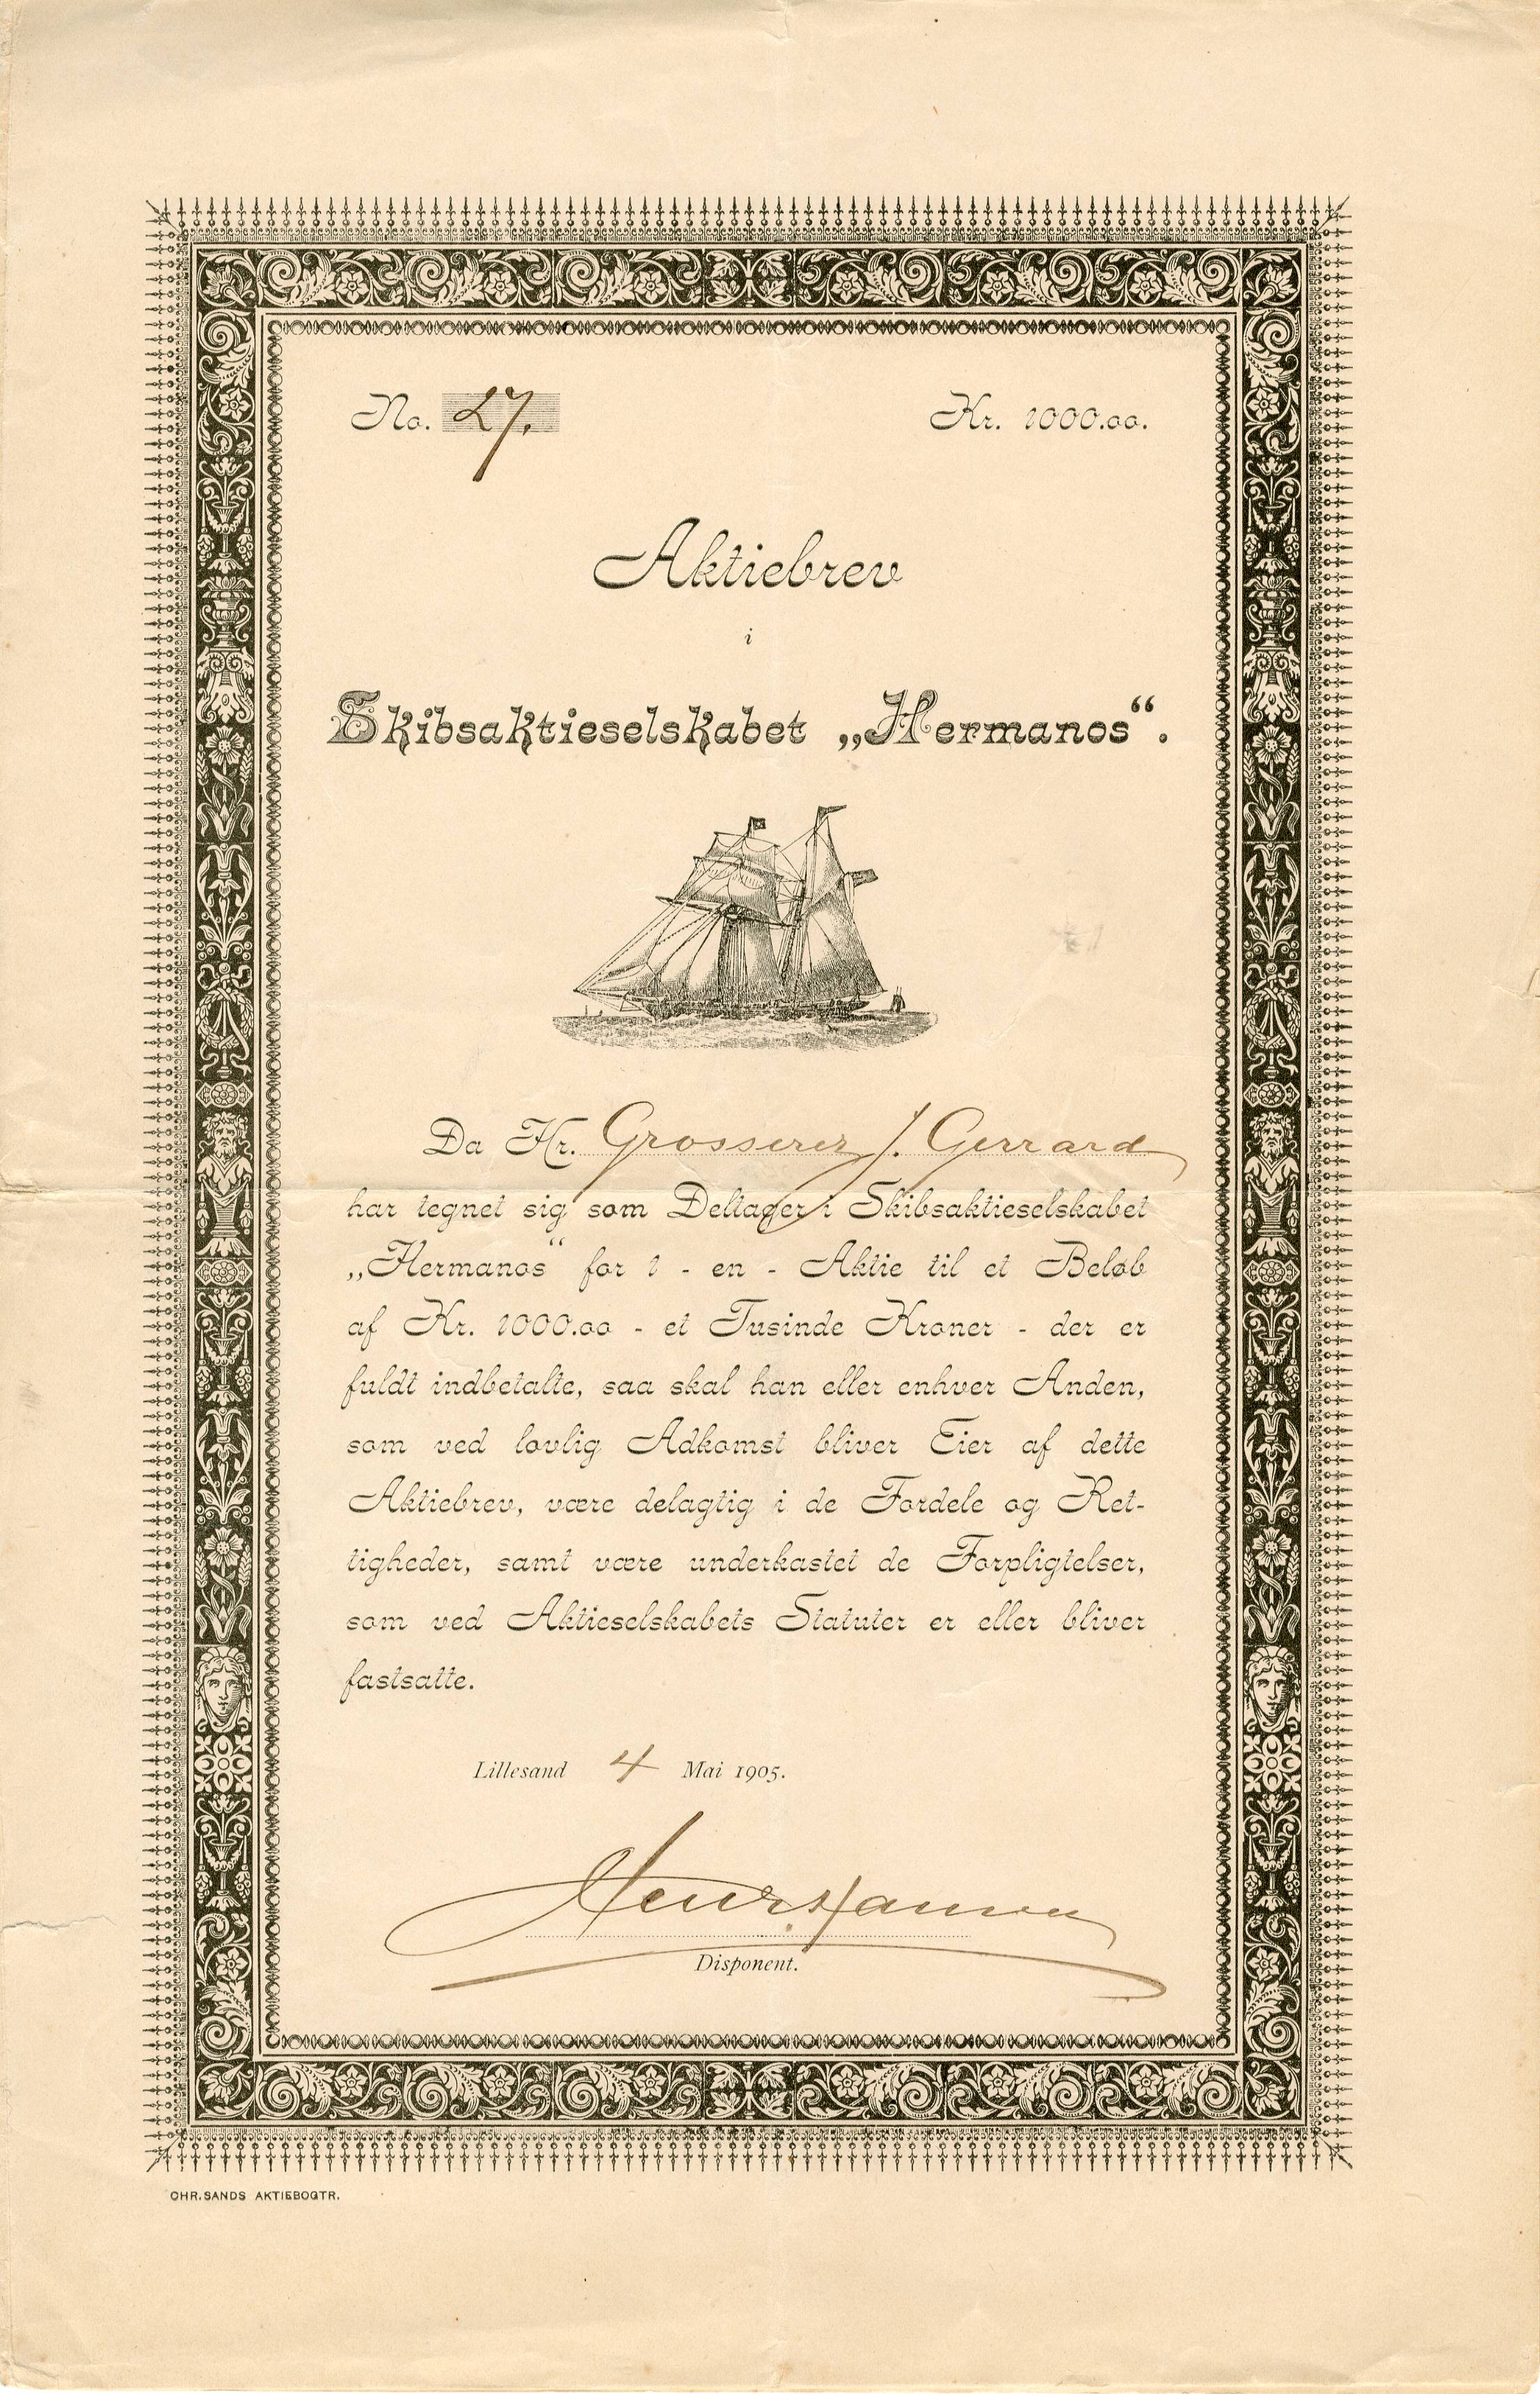 No. 27. Kr. 1000.00.
Aktiebrev
i
Skibsaktieselskabet „Hermanos“.
Da Hr. Grosserer J. Gerrard
har tegnet sig som Deltager i Skibsaktieselskabet
„Hermanos“ for 1 - en - Aktie til et Beløb
af Kr. 1000.00 - et Tusinde Kroner - der er
fuldt indbetalte, saa skal han eller enhver Anden,
som ved lovlig Adkomst bliver Eier af dette
Aktiebrev, være delagtig i de Fordele og Ret-
tigheder, samt være underkastet de Forpligtelser,
som ved Aktieselskabets Statuter er eller bliver
fastsatte.
Lillesand 4 Mai 1905.
Disponent.
CHR.SANDS AKTIEBOGTR.